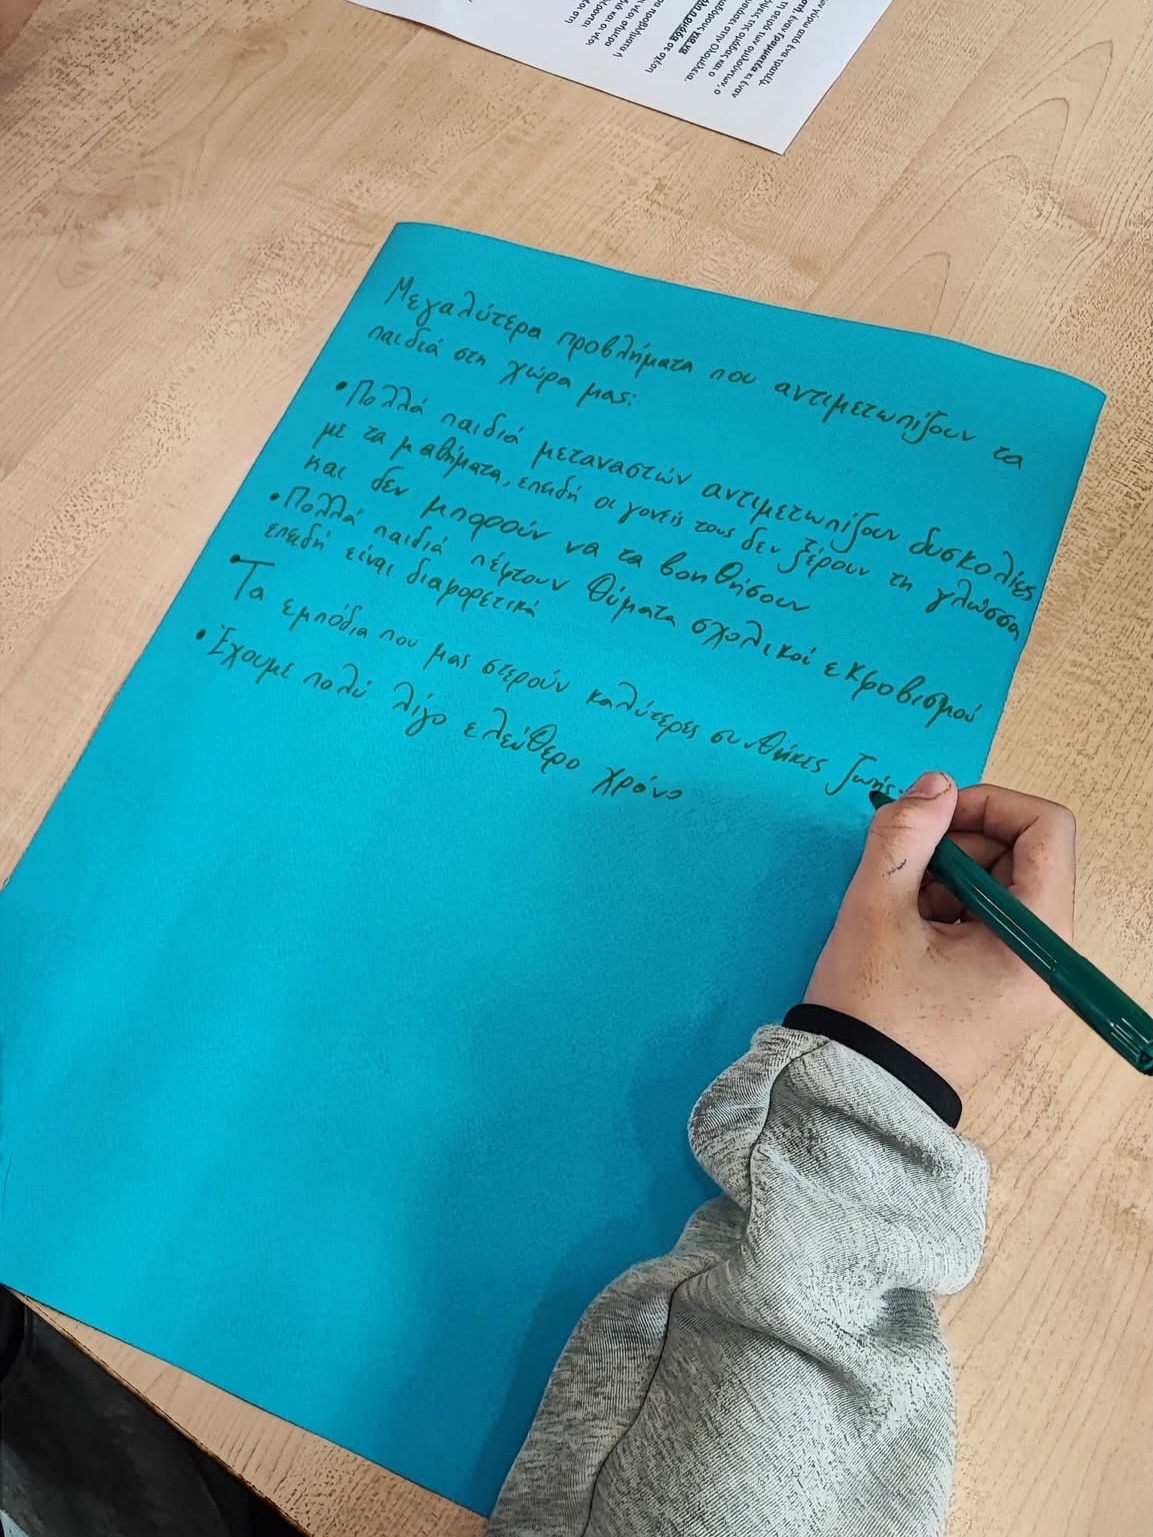 Μεγαλύτερα προβλήματα που αντιμετωπίζουν τα
παιδιά στη χώρα μας:
• Πολλά παιδιά μεταναστών αντιμετωπίζουν δυσκολίες
με τα μαθήματα, επειδή οι γονείς τους δεν ξέρουν τη γλώσσα
και δεν μπορούν να τα βοηθήσουν
• Πολλά παιδιά πέφτουν θύματα σχολικού εκφοβισμού
επειδή είναι διαφορετικά
• Τα εμπόδια που μας στερούν καλύτερες συνθήκες ζωής:
• Έχουμε πολύ λίγο ελεύθερο χρόνο